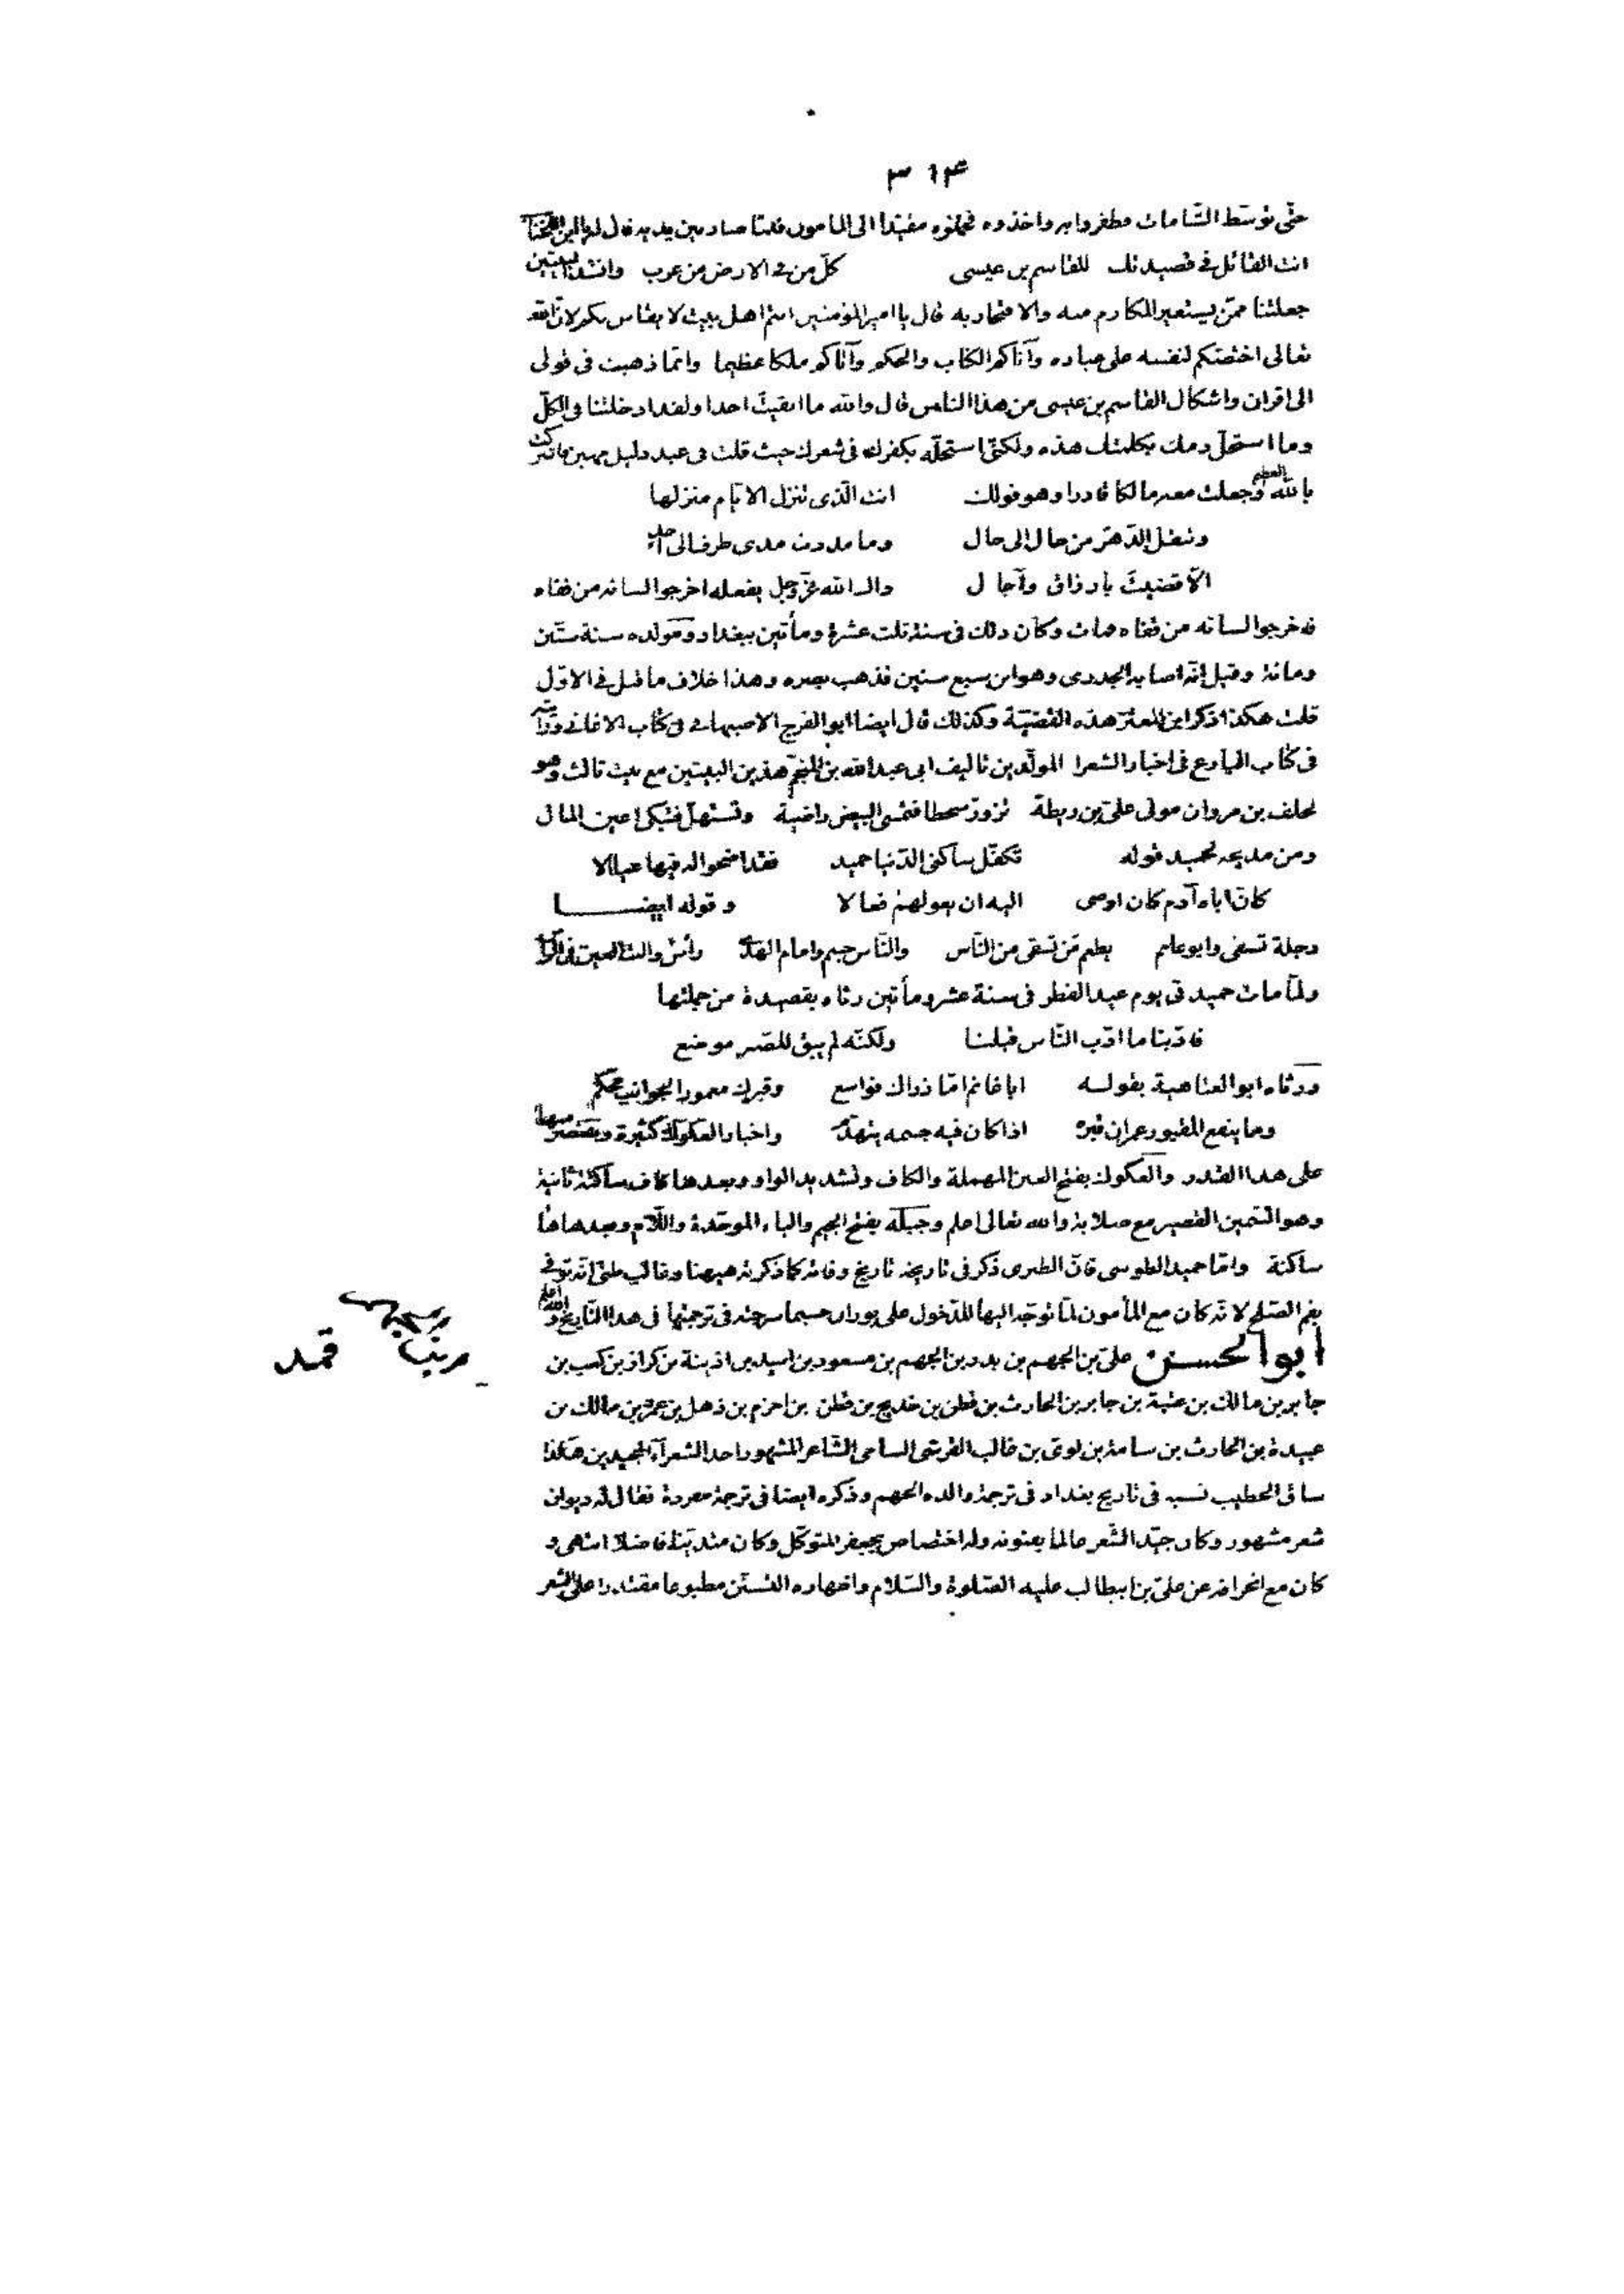 ٣١٤
حتّى توسّط الشّامات فظفروا به واخذوه فحملوه مقيّدا الى المامون فلمّا صار بين يديه قال له يا ابن اللّخنا
انت القائل فى قصيدتك للقاسم بن عيسى كلّ من فى الارض من عرب وانشد البيتين
جعلتنا ممّن يستعير المكارم منه والافتخار به قال يا امير المؤمنين انتم اهل بيت لا يقاس بكم لانّ الله
تعالى اختصّكم لنفسه على عباده وآتاكم الكتاب والحكم وآتاكم ملكا عظيما وانّما ذهبت فى قولى
الى اقران واشكال القاسم بن عيسى من هذا الناس قال والله ما ابقيت احدا ولقد ادخلتنا فى الكلّ
وما استحلّ دمك بكلمتك هذه ولكنّى استحلّه بكفرك فى شعرك حيث قلت فى عبد ذليل مهين فاشركت
بالله العظيم وجعلت معه مالكا قادرا وهو قولك انت الّذى تنزل الايّام منزلها
وتنقل الدّهر من حال الى حال وما مددت مدى طرف الى احد
الّا قضيت بارزاق وآجال ذاك الله عزّ وجل يفعله اخرجوا لسانه من قفاه
فاخرجوا لسانه من قفاه فمات وكان ذلك فى سنة ثلث عشرة ومأتين ببغداد ومولده سنة ستّين
ومائة وقيل انّه اصابه الجدرى وهو ابن سبع سنين فذهب بصره وهذا خلاف ما قيل فى الاوّل
قلت هكذا ذكر ابن المعتز هذه القضيّة وكذلك قال ايضا ابو الفرج الاصبهانى فى كتاب الاغانى ورأيته
فى كتاب البارع فى اخبار الشعرا المولّدين تاليف ابى عبدالله بن المنجّم هذين البيتين مع بيت ثالث وهو
لخلف بن مروان مولى علىّ بن ريطة تزورّ سخطا فتمسى البيض راضية وتستهلّ فتبكى اعين المال
ومن مديحه لحميد قوله تكفّل ساكنى الدّنيا حميد فقد اضحوا له فيها عيالا
كانّ اباه آدم كان اوصى اليه ان يعولهم فعالا وقوله ايضا
دجلة تسقى وابو غانم يطعم من تسقى من النّاس والنّاس جسم وامام الهدى رأس وانت العين فى الرّأس
ولمّا مات حميد فى يوم عيد الفطر فى سنة عشر ومأتين رثاه بقصيدة من جملتها
فادّبنا ما ادّب النّاس قبلنا ولكنّه لم يبق للصّبر موضع
ورثاه ابو العتاهية بقوله ابا غانم امّا ذراك فواسع وقبرك معمور الجوانب محكم
وما ينفع المقبور عمران قبره اذا كان فيه جسمه يتهدّم واخبار العكوك كثيرة ونقتصر منها
على هذا القدر والعكوك بفتح العين المهملة والكاف وتشديد الواو وبعدها كاف ساكنة ثانية
وهو السّمين القصير مع صلابة والله تعالى اعلم وجبله بفتح الجيم والباء الموحّدة واللّام وبعدها ها
ساكنة وامّا حميد الطوسى فانّ الطبرى ذكر فى تاريخه تاريخ وفاته كما ذكرته هيهنا وغالب ظنّى انّه توفى
بفم الصّلح لانّه كان مع المأمون لمّا توجّه اليها للدّخول على بوران حسبما شرحته فى ترجمتها فى هذا التّاريخ والله اعلم
ابو الحسن علىّ بن الجهم بن بدر بن الجهم بن مسعود بن اسيد بن اذينة بن كراز بن كعب بن
جابر بن مالك بن عتبة بن جابر بن الحارث بن قطن بن خديج بن قطن بن احزم بن ذهل بن عمرو بن مالك بن
عبيدة بن الحارث بن سامة بن لوى بن غالب القرشى السامى الشّاعر المشهور احد الشعرآء المجيدين هكذا
ساق الخطيب نسبه فى تاريخ بغداد فى ترجمة والده الجهم وذكره ايضا فى ترجمة مفردة فقال له ديوان
شعر مشهور وكان جيّد الشّعر عالما بفنونه وله اختصاص بجعفر المتوكّل وكان متديّنا فاضلا انتهى و
كان مع انحرافه عن علىّ بن ابيطالب عليه الصّلوة والسّلام واظهاره التّسنّن مطبوعا مقتدرا على الشعر